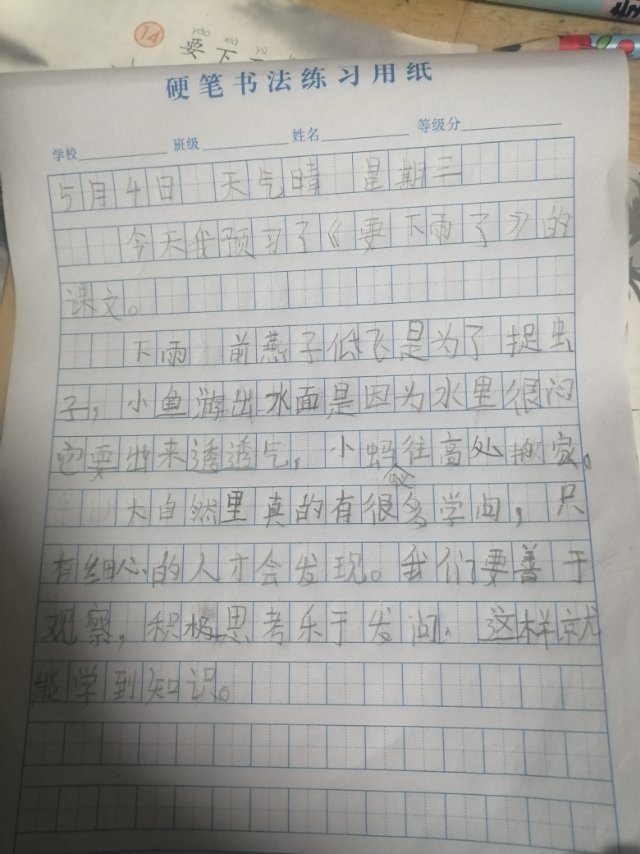 14 要下
yào xià yǔ
硬笔书法练习用纸
学校 班级 姓名 等级分
5月4日 天气晴 星期三
今天我预习了《要下雨了》的
课文。
下雨 前燕子低飞是为了捉虫
子，小鱼游出水面是因为水里很闷
它要出来透透气，小蚂往高处搬家。
蚁
大自然里真的有很多学问，只
有细心的人才会发现。我们要善于
观察，积极思考乐于发问、这样就
能学到知识。